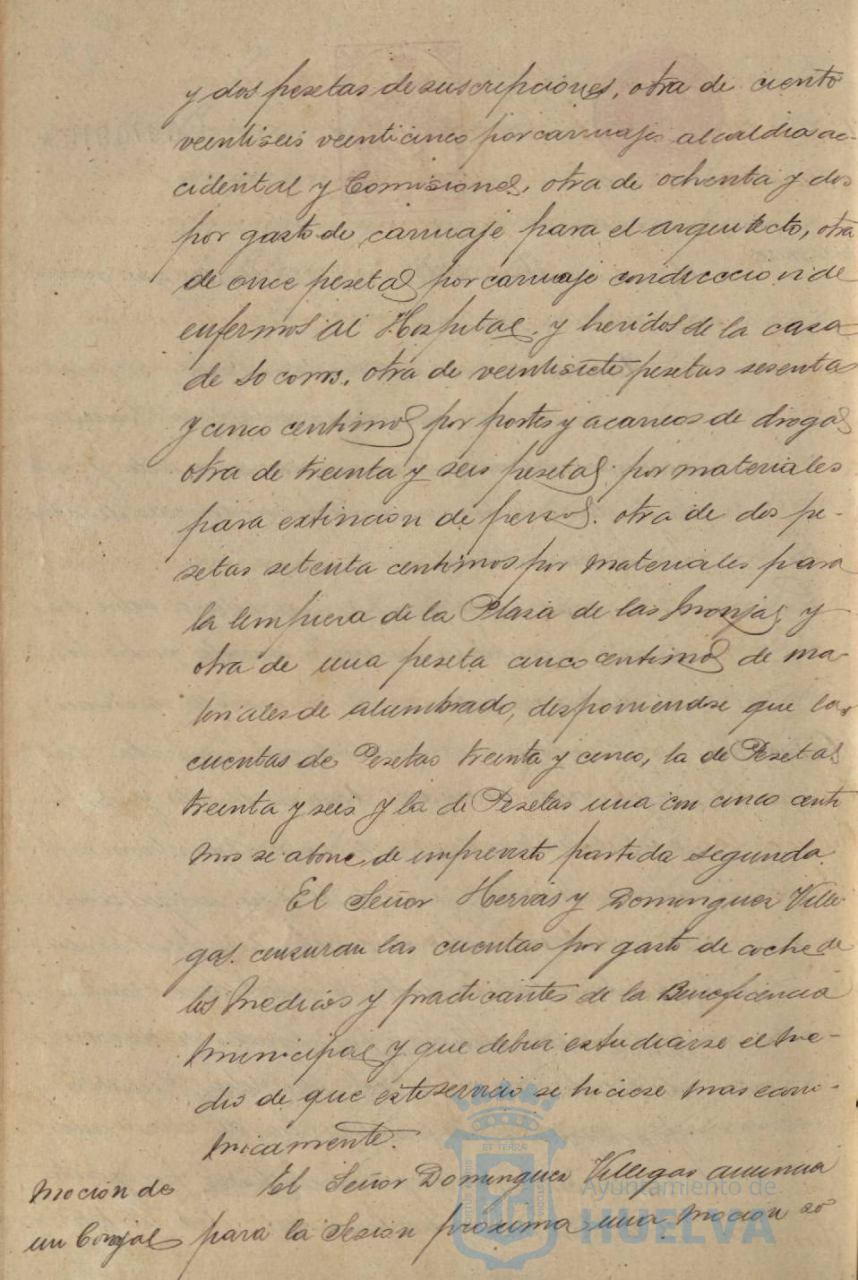 y dos pesetas de suscrepciones, otra de ciento
veintiseis veinticinco por carruajes alcaldia ac-
cidental y Comisiones, otra de ochenta y dos
por gasto de carruaje para el arquitecto, otra
de once pesetas por carruaje conduccion de
enfermos al Hospital y heridos de la casa
de Socorro, otra de veintisiete pesetas sesenta
y cinco centimos por portes y acarreos de drogas
otra de treinta y seis pesetas por materiales
para extincion de perros. otra de dos pe-
setas setenta centimos por materiales para
la limpieza de la Plaza de las Monjas y
otra de una peseta cinco centimos de ma-
teriales de alumbrado, disponiendose que las
cuentas de Pesetas treinta y cinco, la de Pesetas
treinta y seis y la de Pesetas una con cinco centi
mos se abone de imprevisto partida segunda.
El Señor Hervás y Dominguez Ville
gas. censuran las cuentas por gasto de coche de
los Medicos y practicantes de la Beneficencia
Municipal y que debia estudiarse el me-
dio de que este servicio se hiciese mas econo-
micamente.
El Señor Dominguez Villegas anuncia
Mocion de
un Concejal
para la Sesion proxima una mocion so
ET TERRA
Ayuntamiento de
HUELVA